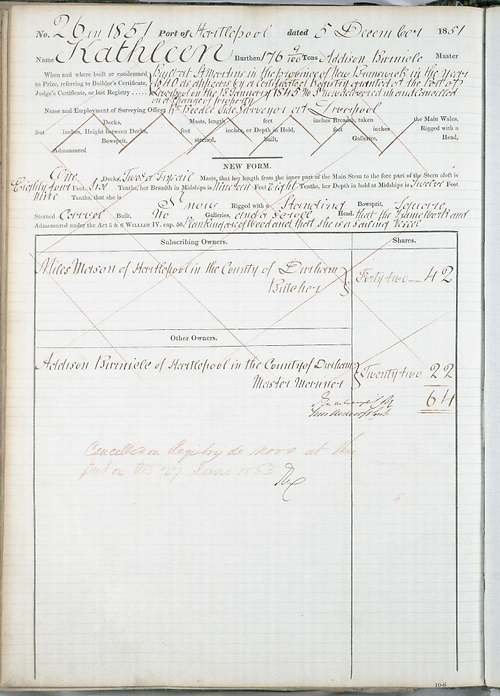 No. 26 in 1851 Port of Hartlepool dated 5 December 1851
Name Kathleen Burthen 176 Tons Addison Birnicle Master
When and where built or condemned
to Prize, referring to Builder's Certificate,
Judge's Certificate, or last Registry
Built at St Martins in the Province of New Brunswick in the Year
1840 as appears by a Certificate of Registry granted at the Port of
Liverpool on the January 1845 No 5 now delivered up and Cancelled
on a change of property
Name and Employment of Surveying Officer Wm Beedle Tide Surveyor at Liverpool
Decks, Masts, length feet inches Breadth, taken the Main Wales,
feet inches, Height between Decks, feet inches, or Depth in Hold, feet inches, Rigged with a
Bowsprit, sterned, built, Galleries, Head,
Admeasured
NEW FORM.
One Deck, Two & a Masts, that her length from the inner part of the Main Stem to the fore part of the Stern aloft is
Eighty four Feet Six Tenths, her Breadth in Midships is Nineteen Feet Eight Tenths, her Depth in hold at Midships is Twelve Feet
Nine Tenths, that she is Snow Rigged with a Standing Bowsprit, Square
Sterned Carvel Built, No Galleries, and a Scroll Head, that the Framework and
Admeasured under the Act 5 & 6 WILLIAM IV. cap. 56, Planking is of Wood and that she is a Sailing Vessel
Subscribing Owners. Shares.
Miles Moison of Hartlepool in the County of Durham
Butcher Forty two 42
Other Owners.
Addison Birnicle of Hartlepool in the County of Durham
Master Mariner Twenty two 22
64
Cancelled on Registry de novo at this
port on the 27 1853
10-6